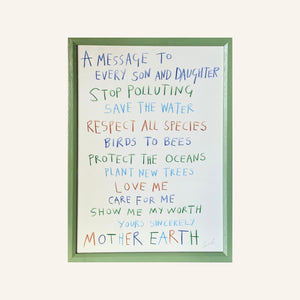 A MESSAGE TO
EVERY SON AND DAUGHTER
STOP POLLUTING
SAVE THE WATER
RESPECT ALL SPECIES
BIRDS TO BEES
PROTECT THE OCEANS
PLANT NEW TREES
LOVE ME
CARE FOR ME
SHOW ME MY WORTH
YOURS SINCERELY
MOTHER EARTH